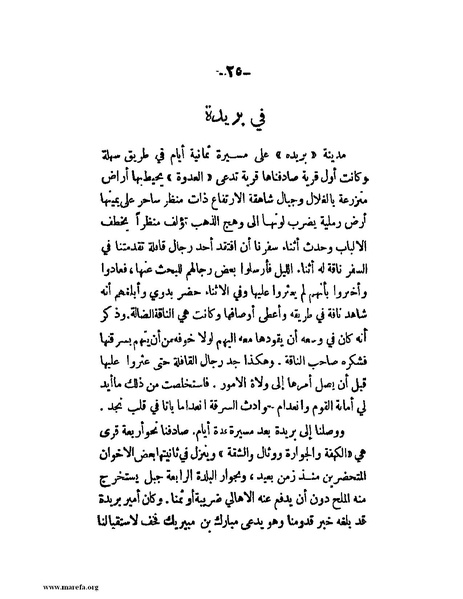 -٢٥-
في بريدة
مدينة « بريده » على مسيرة ثمانية أيام في طريق سهلة
وكانت أول قرية صادفناها قرية تدعى « العدوة » يحيط بها أراض
منزرعة بالغلال وجبال شاهقة الارتفاع ذات منظر ساحر على يمينها
أرض رملية يضرب لونها الى وهج الذهب تؤلف منظراً يخطف
الالباب وحدث أثناء سفرنا أن افتقد أحد رجال قافلة تقدمتنا في
السفر ناقة له أثناء الليل فأرسلوا بعض رجالهم للبحث عنها ، فعادوا
وأخبروا بأنهم لم يعثروا عليها وفي الاثناء حضر بدوي وأبلغهم أنه
شاهد ناقة في طريقه وأعطى أوصافها وكانت هي الناقة الضالة . وذكر
أنه كان في وسعه أن يقودها معه اليهم لولا خوفه من أن يتهم بسرقتها
فشكره صاحب الناقة . وهكذا جد رجال القافلة حتى عثروا عليها
قبل أن يصل أمرها إلى ولاة الامور . فاستخلصت من ذلك ما أيد
لي أمانة القوم وانعدام حوادث السرقة انعداما باتا في قلب نجد .
ووصلنا إلى بريدة بعد مسيرة عدة أيام . صادفنا نحو أربعة قرى
هي « الكهفة والجوارة ووثال والشقة » وينزل في ثانيتها بعض الاخوان
المتحضرين منذ زمن بعيد ، وبجوار البلدة الرابعة جبل يستخرج
منه الملح دون أن يدفع عنه الاهالي ضريبة أو ثمنا . وكان أمير بريدة
قد بلغه خبر قدومنا وهو يدعى مبارك بن مبيريك فخف لاستقبالنا
www.marefa.org